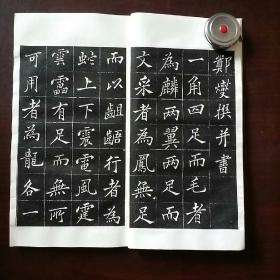 鄭燮撰并書
一角四足而毛者
為麟兩翼兩足而
文采者為鳳無足
而以齟齬行者為
蛇上下震電風霆
雲靁有足而無所
可用者為龍各一